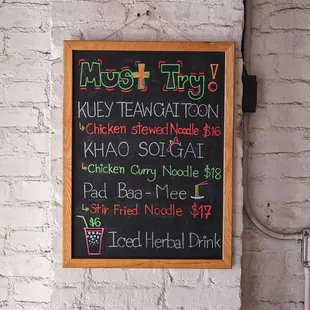 Must Try!
KUEY TEAWGAITOON
Chicken stewed Noodle $16
KHAO SOI GAI
Chicken Curry Noodle $18
Pad Baa-Mee
Stir Fried Noodle $17
$6
Iced Herbal Drink